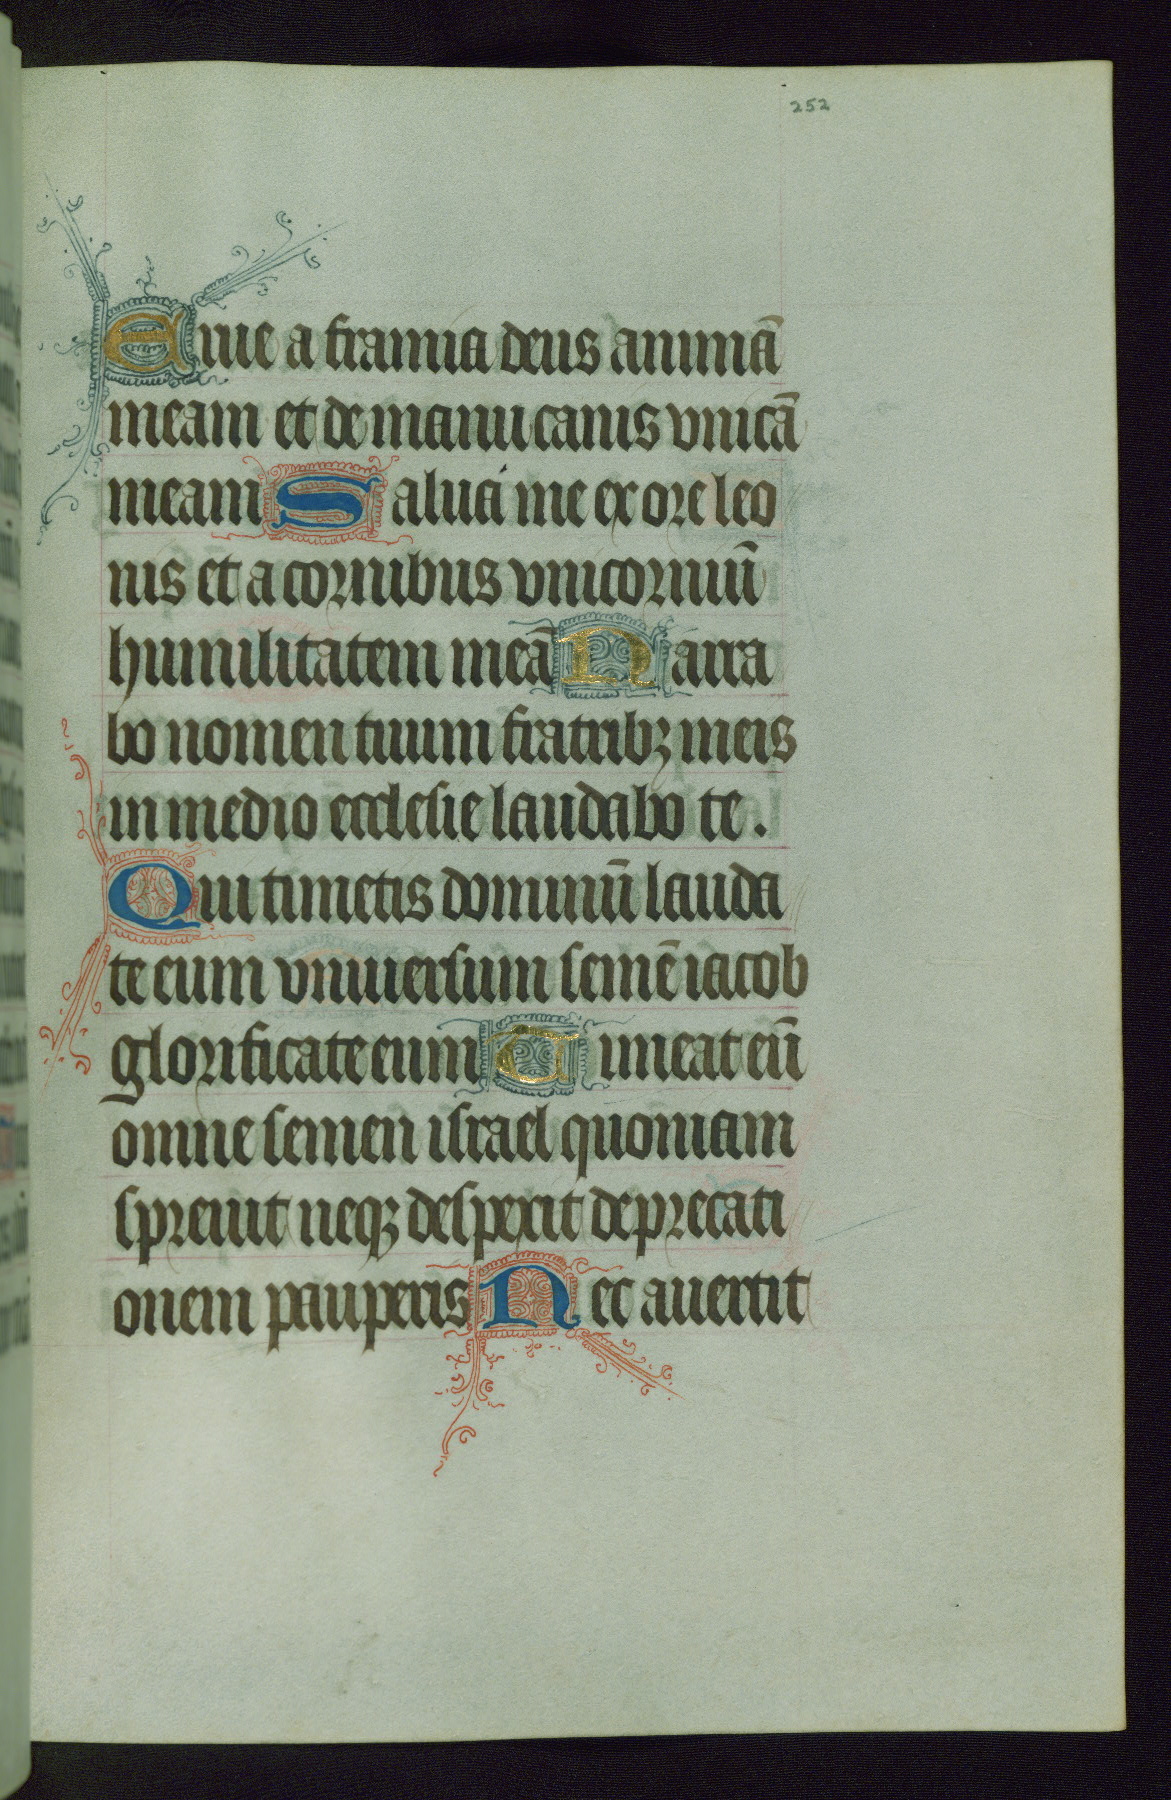 252
Erue a framea deus animā
meam et de manu canis vnicā
meam Salua me ex ore leo
nis et a cornibus vnicorniū
humilitatem meā Narra
bo nomen tuum fratribꝫ meis
in medio ecclesie laudabo te.
Qui timetis dominū lauda
te eum vniuersum semē iacob
glorificate eum Timeat eū
omne semen israel quoniam
spreuit neqꝫ despexit deprecati
onem pauperis Nec auertit